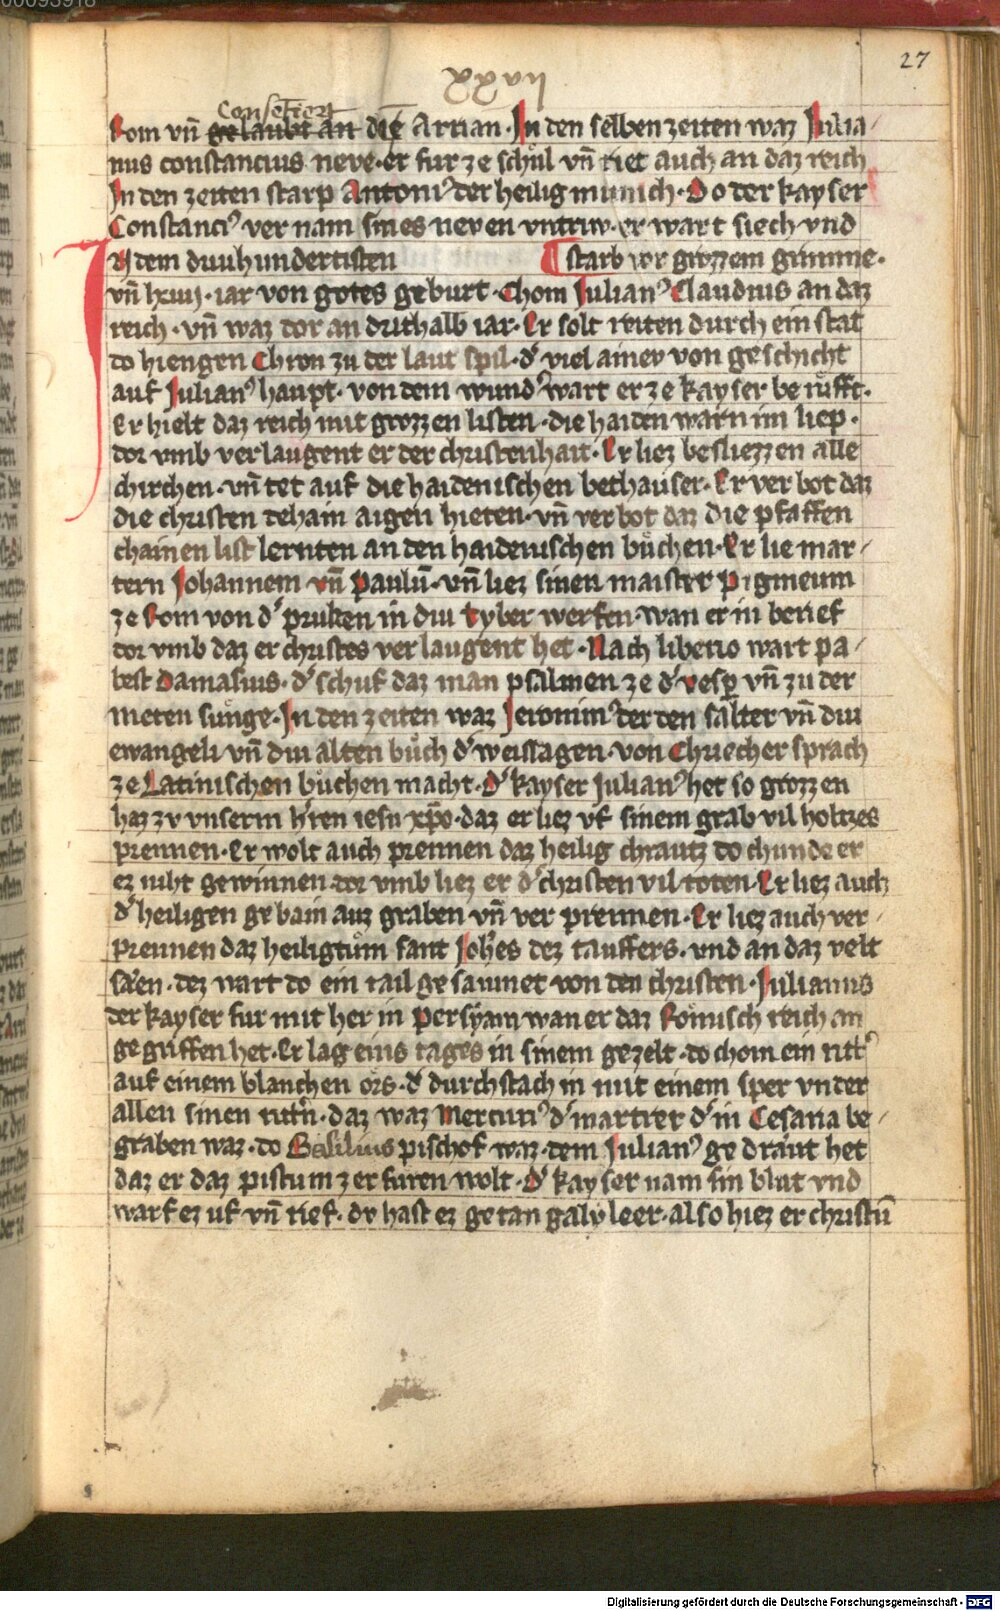 00093918
27
xxxvii
Consetiert
Rom vn̄ gelaubt an die Arrian. In den selben zeiten waz Julia-
nus constancius neve. er fur ze schůl vn̄ riet auch an daz reich
In den zeiten starp Antoni⁹ der heilig munich. Do der kayser
Constanci⁹ ver nam sines neven vntriw. er wart siech vnd
starb vor grozzem grimme.
In dem driuhundertisten
vn̄ lxiiij. iar von gotes geburt. Chom Julian⁹ Claudius an daz
reich. vn̄ waz dor an drithalb iar. Er solt reiten durch ein stat
do hiengen Chron zu der laut spil. d' viel ainev von geschicht
auf Julian⁹ haupt. von dem wund' wart er ze kayser be růfft.
Er hielt daz reich mit grozzen listen. die haiden warn im liep.
dor vmb verlaugent er der christenhait. Er liez besliezzen alle
chirchen. vn̄ tet auf die haidenischen bethauser. Er ver bot daz
die christen dehain aigen hieten. vn̄ ver bot daz die pfaffen
chainen list lernten an den haidenischen bůchen. Er lie mar-
tern Johannem vn̄ Paulū. vn̄ liez sinen maister Pigmeum
ze Rom von d' prukken in diu Tyber werfen. wan er in berief
dor vmb daz er christes ver laugent het. Nach liberio wart pa-
best Damasius. d' schuf daz man psalmen ze d' vesp vn̄ zu der
meten sunge. In den zeiten waz Jeronim⁹ der den salter vn̄ diu
ewangeli vn̄ diu alten bůch d' weissagen. von Chriecher sprach
ze Latinischen bůchen macht. D' kayser Julian⁹ het so grozzen
haz zv vnserm h'ren iesu xp̄o. daz er liez vf sinem grab vil holtzes
prennen. Er wolt auch prennen daz heilig chrautz do chunde er
ez niht gewinnen. dor vmb liez er d' christen vil toten. Er liez auch
d' heiligen gebain auz graben vn̄ ver prennen. Er liez auch ver-
prennen daz heiligtům sant Joh'es dez tauffers. vnd an daz velt
sæen. dez wart do ein tail gesamnet von den christen. Julianus
der kayser fur mit her in Persyam wan er daz Romisch reich an
gegriffen het. Er lag eins tages in sinem gezelt. do chom ein ritt'
auf einem blanchen ors. d' durchstach in mit einem sper vnder
allen sinen ritt'n. daz waz Mercuri⁹ d' martrer d' in Cesaria be-
graben waz. do Basilius pischof waz. dem Julian⁹ gedraut het
daz er daz pistum zerfuren wolt. D' kayser nam sin blut vnd
warf ez uf vn̄ rief. dv hast ez getan galyleer. also hiez er christū
Digitalisierung gefördert durch die Deutsche Forschungsgemeinschaft - DFG